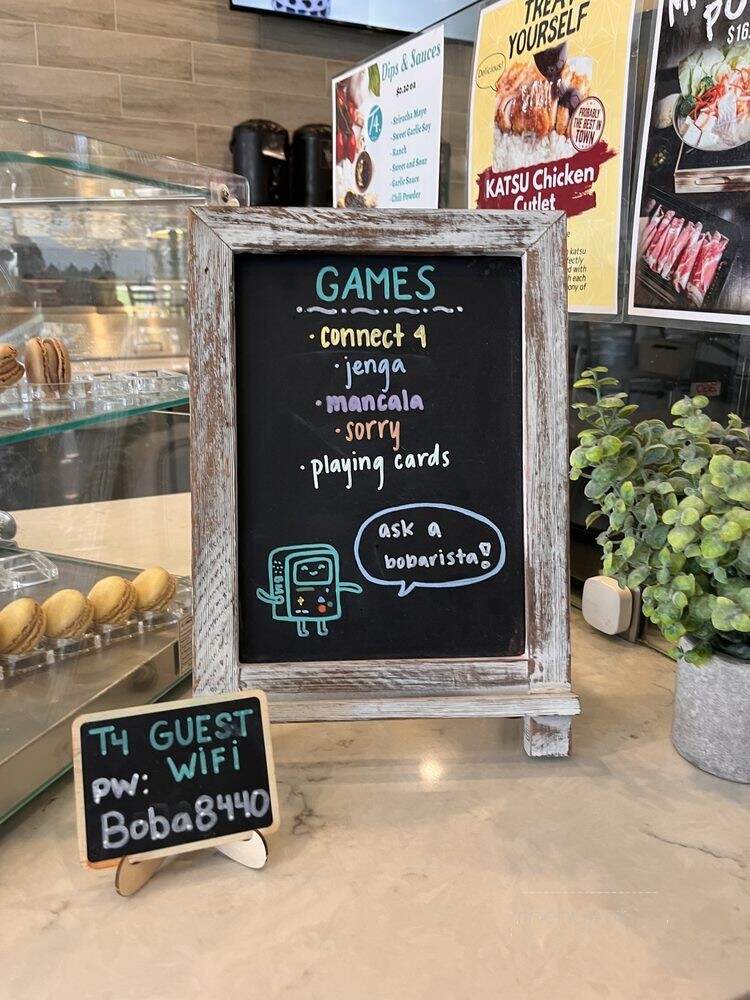 Dips & Sauces
$0.50 ea
-Sriracha Mayo
-Sweet Garlic Soy
-Ranch
-Sweet and Sour
-Garlic Sauce
-Chili Powder
TREAT
YOURSELF
Delicious!
PROBABLY
THE BEST IN
TOWN
KATSU Chicken
Cutlet
GAMES
·connect 4
·jenga
·mancala
·sorry
·playing cards
ask a
bobarista!
T4 GUEST
WiFi
PW:
Boba8440